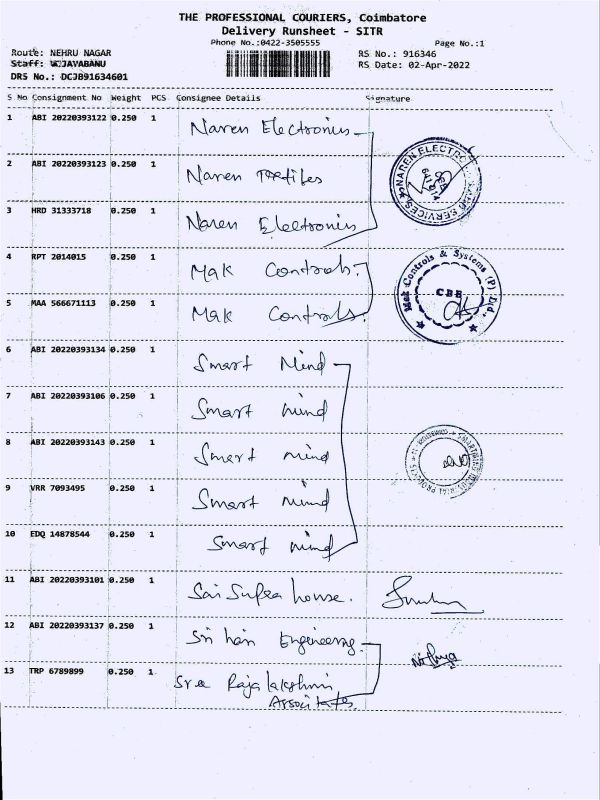 THE PROFESSIONAL COURIERS, Coimbatore
Delivery Runsheet - SITR
Phone No.:0422-3505555 Page No.:1
Route: NEHRU NAGAR RS No.: 916346
Staff: W.JAYABANU RS Date: 02-Apr-2022
DRS No.: DCJB91634601
S No Consignment No Weight PCS Consignee Details Signature
1 ABI 20220393122 0.250 1 Naren Electronics
2 ABI 20220393123 0.250 1 Naren
3 HRD 31333718 0.250 1 Naren Electronics
NAREN ELECTRO SERVICES
4 RPT 2014015 0.250 1 Mak Controls.
5 MAA 566671113 0.250 1 Mak Controls.
Mak Controls & Systems (P) Ltd.,
CBE
6 ABI 20220393134 0.250 1 Smart Mind
7 ABI 20220393106 0.250 1 Smart mind
8 ABI 20220393143 0.250 1 Smart mind
9 VRR 7093495 0.250 1 Smart mind
10 EDQ 14878544 0.250 1 Smart mind
11 ABI 20220393101 0.250 1 Sai Supra house.
12 ABI 20220393137 0.250 1 Sri hari Engineering.
Nithya
13 TRP 6789899 0.250 1 Sree Rajalakshmi
Associates